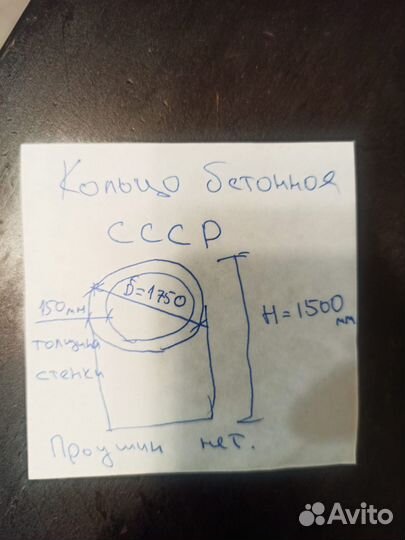 Кольцо бетонное
СССР
D=1750
150мм
H=1500 мм
толщина
стенки
Проушин нет.
Avito